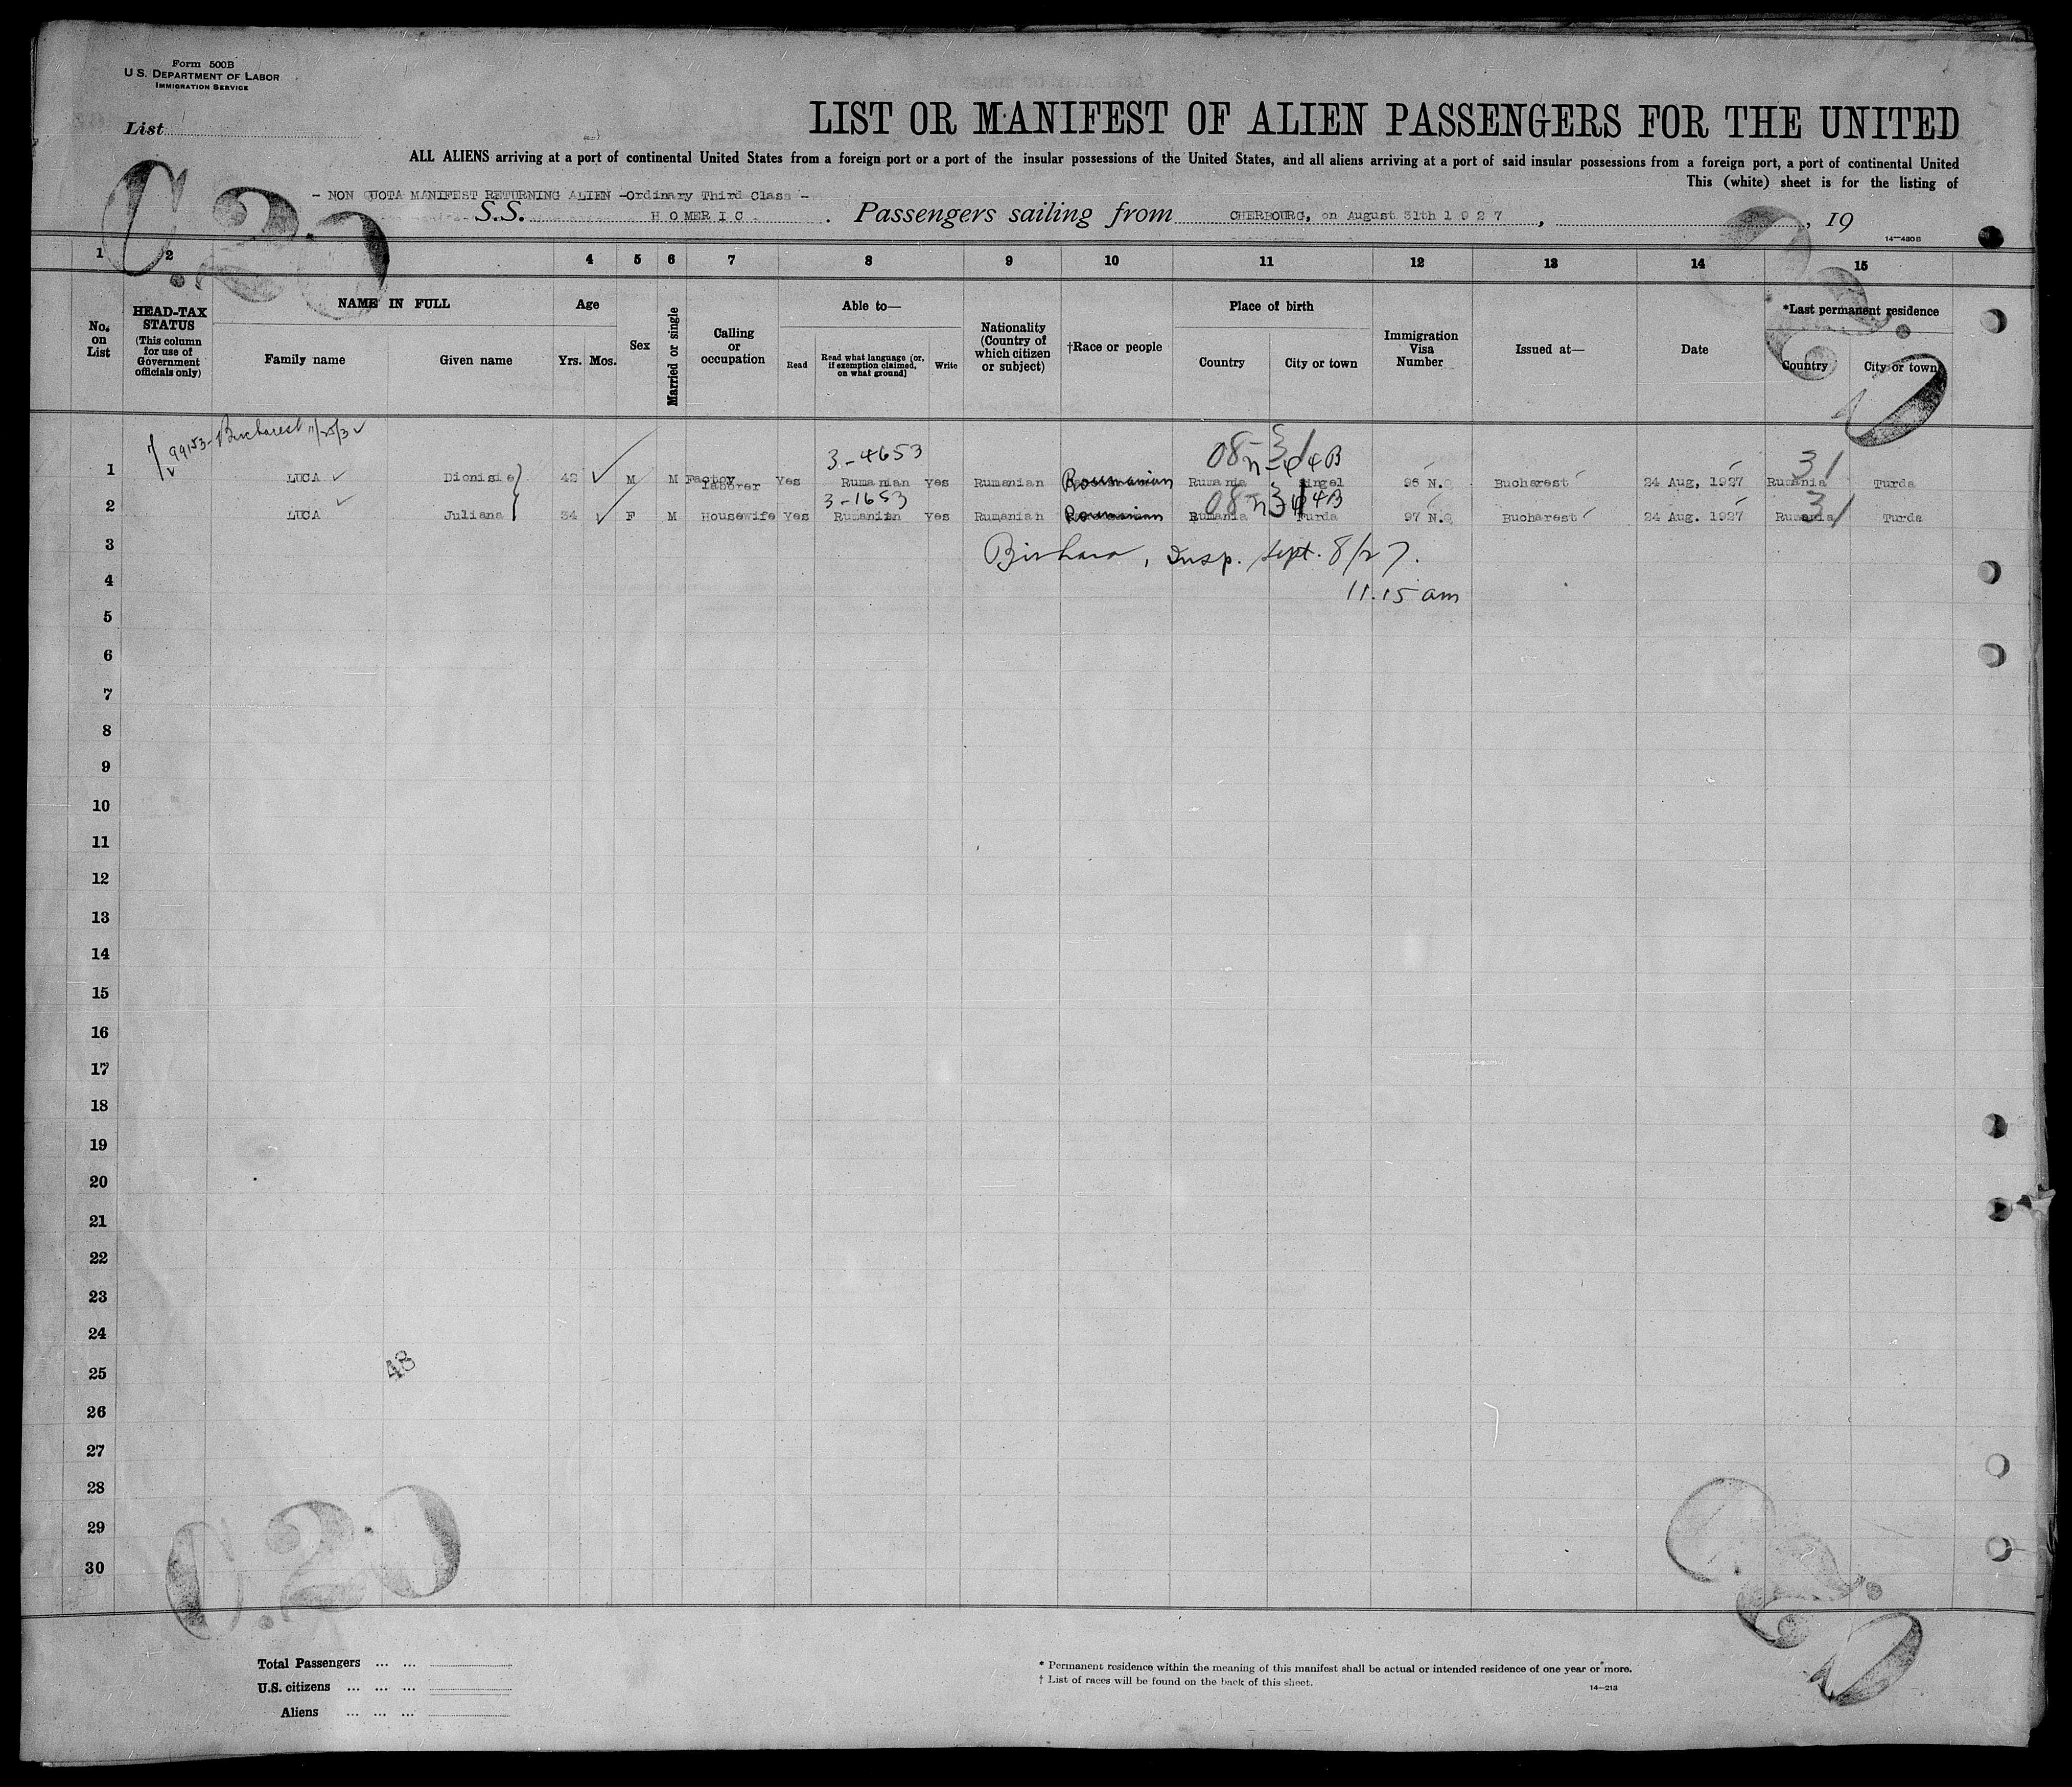 Form 500B
U. S. DEPARTMENT OF LABOR
IMMIGRATION SERVICE
List
LIST OR MANIFEST OF ALIEN PASSENGERS FOR THE UNITED
ALL ALIENS arriving at a port of continental United States from a foreign port or a port of the insular possessions of the United States, and all aliens arriving at a port of said insular possessions from a foreign port, a port of continental United
This (white) sheet is for the listing of
- NON QUOTA MANIFEST RETURNING ALIEN -Ordinary Third Class -
S.S. HOMERIC. Passengers sailing from CHERBOURG, on August 31th 1927, , 19
14-430B
C.20
1 2 4 5 6 7 8 9 10 11 12 13 14 15
No. on List
HEAD-TAX STATUS (This column for use of Government officials only)
NAME IN FULL
Family name
Given name
Age
Yrs. Mos.
Sex
Married or single
Calling or occupation
Able to—
Read
Read what language [or, if exemption claimed, on what ground]
Write
Nationality (Country of which citizen or subject)
†Race or people
Place of birth
Country
City or town
Immigration Visa Number
Issued at—
Date
*Last permanent residence
Country
City or town
99153-Bucharest 11/25/32
3-4653
08-31
31
1 LUCA Dionisie 42 M M Factory laborer Yes Rumanian yes Rumanian Roumanian Rumania Singel 96 N.Q Bucharest 24 Aug, 1927 Rumania Turda
3-1653
2 LUCA Juliana 34 F M Housewife Yes Rumanian yes Rumanian Roumanian Rumania Turda 97 N.Q Bucharest 24 Aug. 1927 Rumania Turda
3 Insp. Sept. 8/27.
4 11.15 am
5
6
7
8
9
10
11
12
13
14
15
16
17
18
19
20
21
22
23
24
25
48
26
27
28
29
30
C.20
C.20
Total Passengers ... ...
U.S. citizens ... ... ...
Aliens ... ... ...
* Permanent residence within the meaning of this manifest shall be actual or intended residence of one year or more.
† List of races will be found on the back of this sheet.
14-213